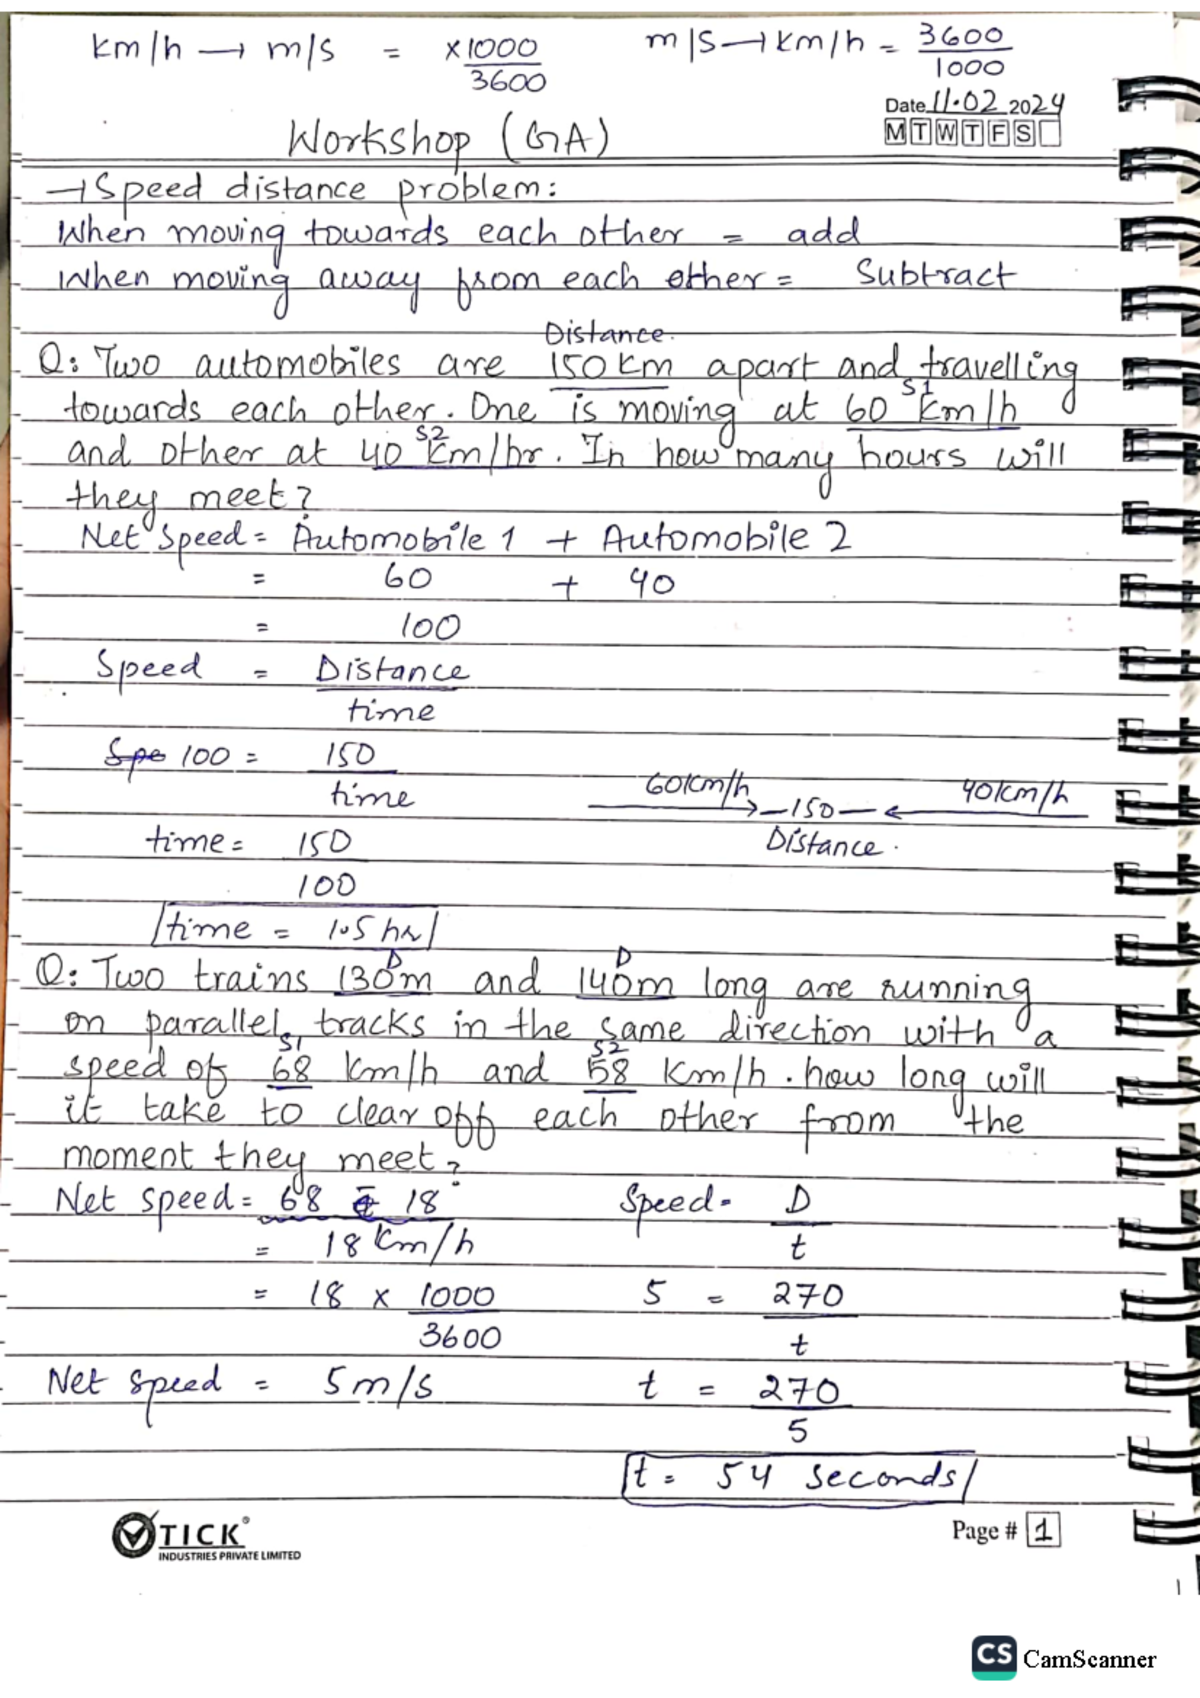 km/h → m/s = x1000/3600 m/s → km/h = 3600/1000
Date 11.02 2024
M T W T F S
Workshop (GA)
→ Speed distance problem:
When moving towards each other = add
When moving away from each other = Subtract
Distance.
Q: Two automobiles are 150 km apart and travelling
S1
towards each other. One is moving at 60 km/h
S2
and other at 40 km/hr. In how many hours will
they meet?
Net Speed = Automobile 1 + Automobile 2
= 60 + 40
= 100
Speed = Distance
time
Spe 100 = 150
time
60km/h 40km/h
→ -150- ←
time = 150 Distance.
100
time = 1.5 hr
D D
Q: Two trains 130m and 140m long are running
on parallel tracks in the same direction with a
S1 S2
speed of 68 km/h and 58 km/h. how long will
it take to clear off each other from the
moment they meet?
Net speed = 68 - 18 Speed = D
= 18 km/h t
= 18 x 1000 5 = 270
3600 t
Net speed = 5m/s t = 270
5
t = 54 seconds
TICK®
INDUSTRIES PRIVATE LIMITED
Page # 1
1
CS CamScanner